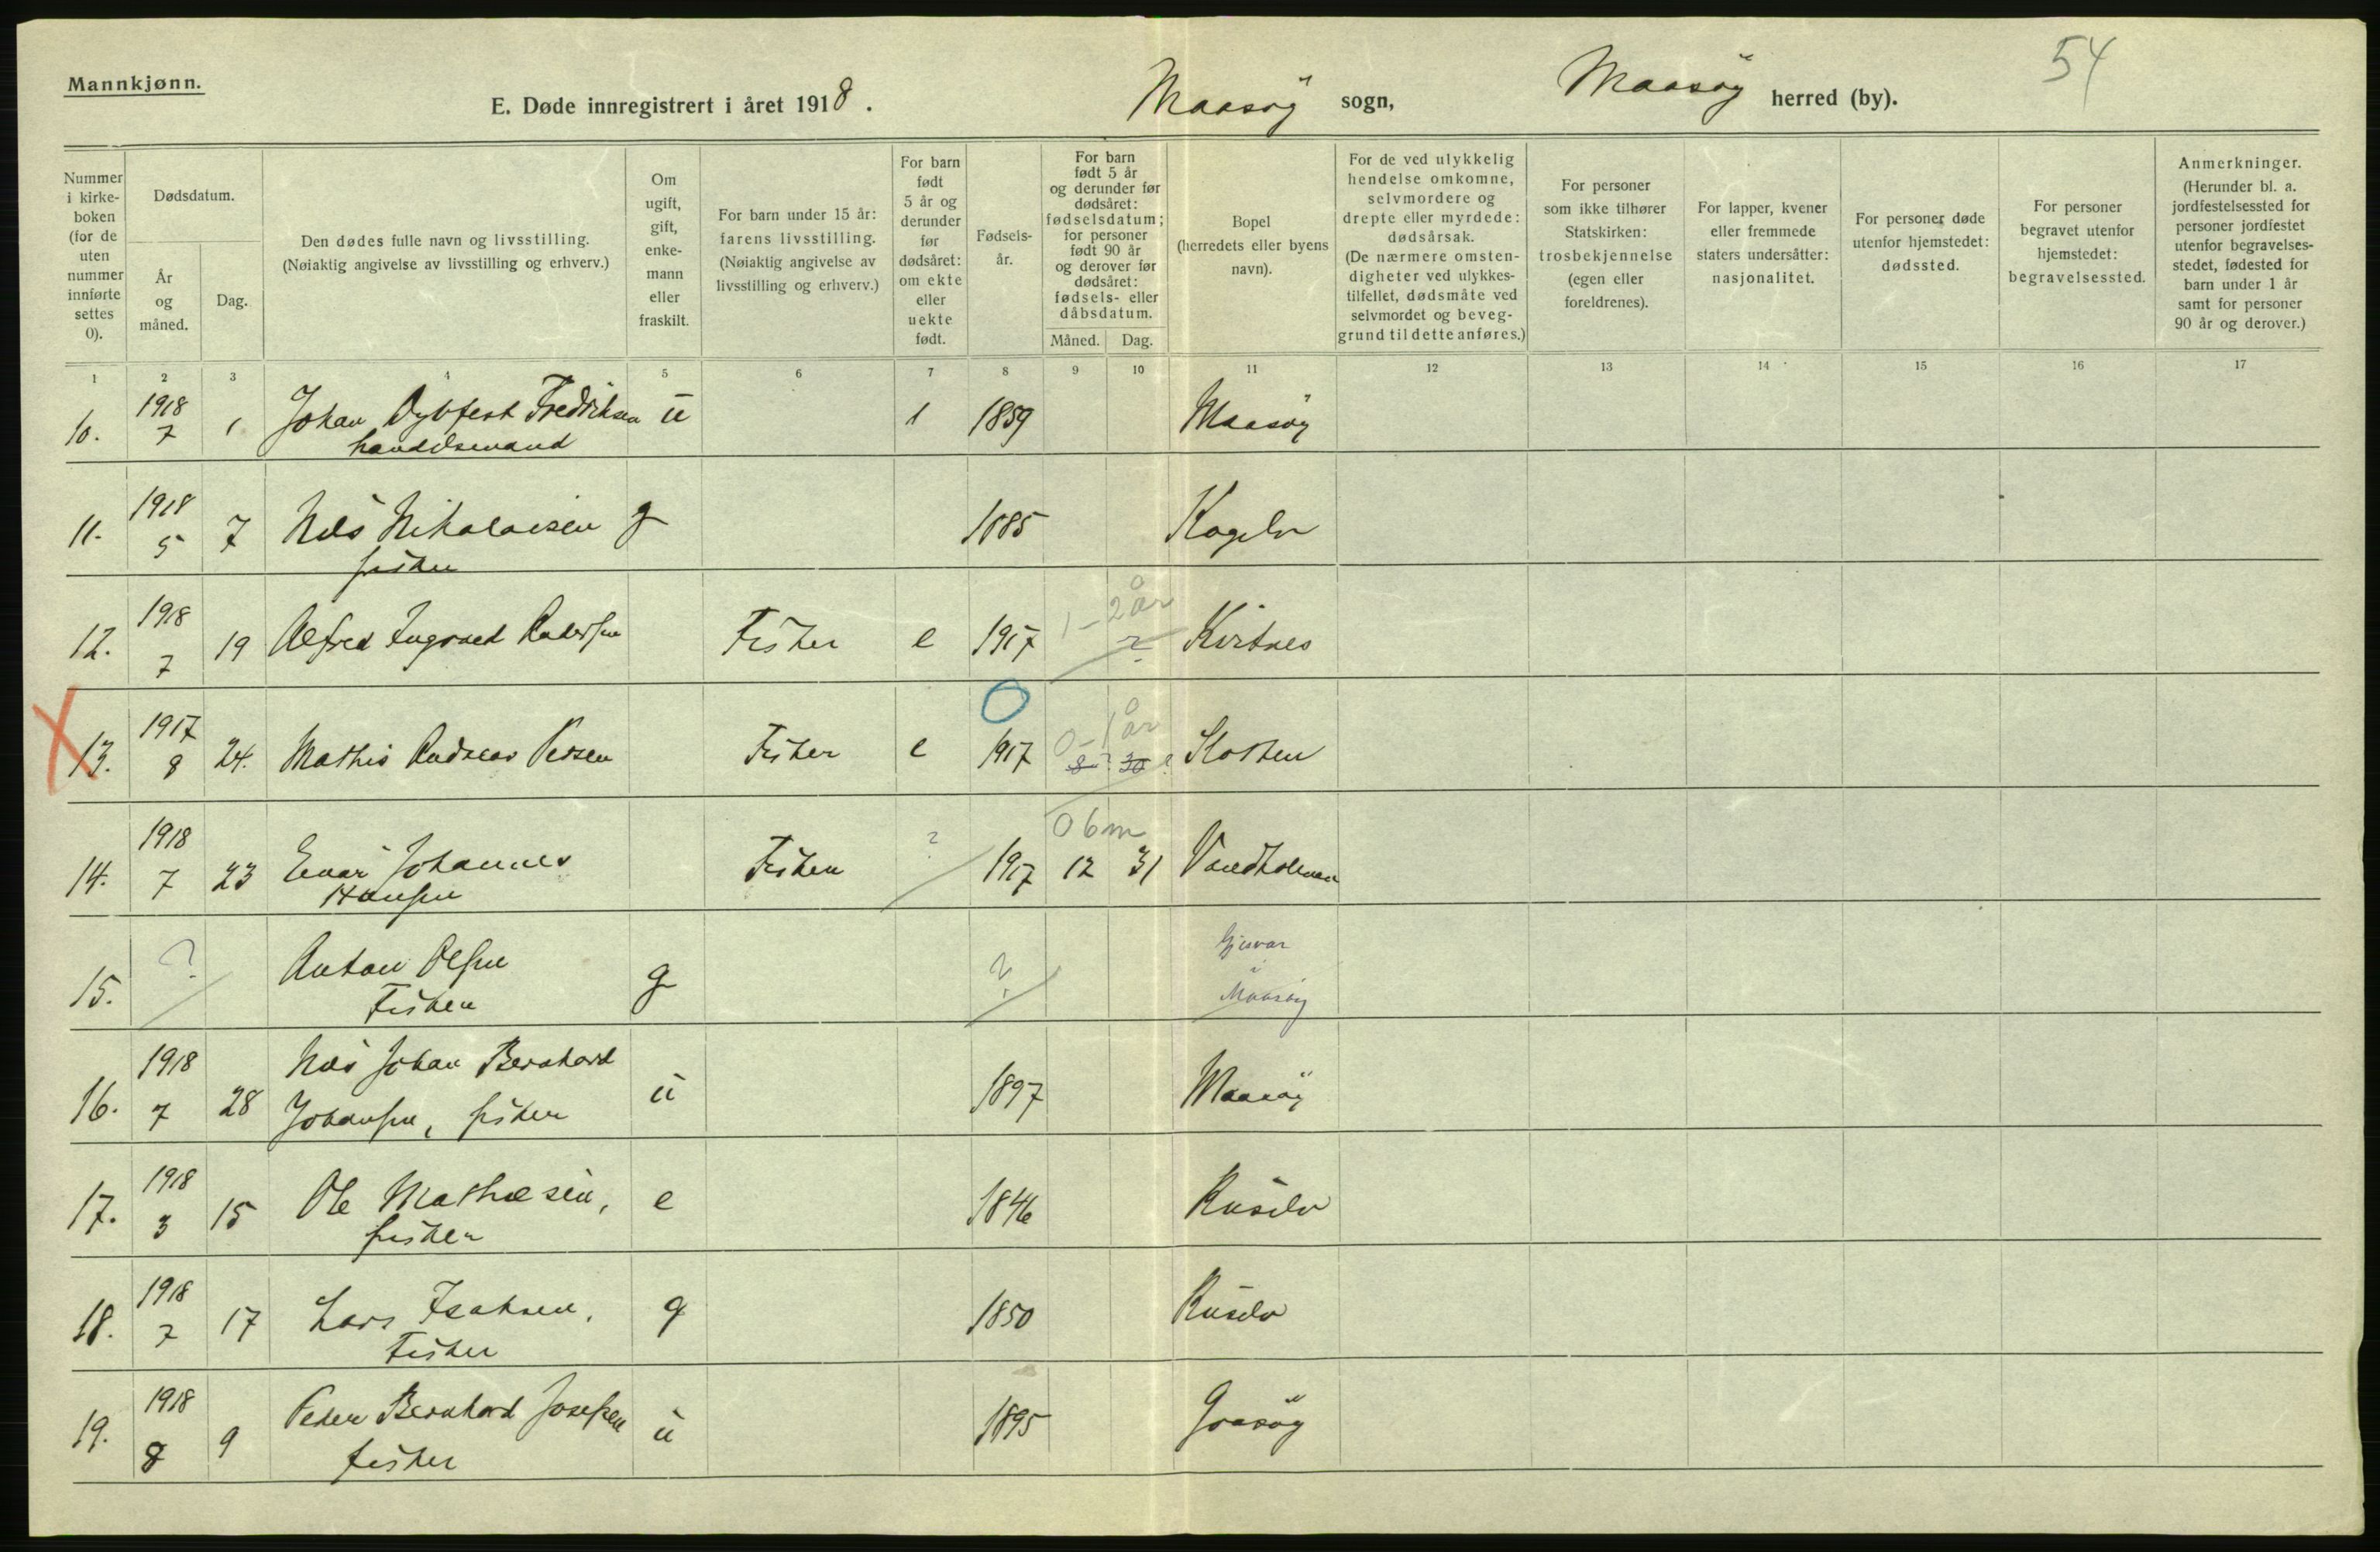 Mannkjønn.
E. Døde innregistrert i året 1918. Maasöy sogn, Maasöy herred (by). 54
Nummer i kirke-boken (for de uten nummer innførte settes 0).
Dødsdatum.
År og måned.
Dag.
Den dødes fulle navn og livsstilling.
(Nøiaktig angivelse av livsstilling og erhverv.)
Om ugift, gift, enke-mann eller fraskilt.
For barn under 15 år: farens livsstilling.
(Nøiaktig angivelse av livsstilling og erhverv.)
For barn født 5 år og derunder før dødsåret: om ekte eller uekte født.
Fødsels-år.
For barn født 5 år og derunder før dødsåret: fødselsdatum; for personer født 90 år og derover før dødsåret: fødsels- eller dåbsdatum.
Måned.
Dag.
Bopel
(herredets eller byens navn).
For de ved ulykkelig hendelse omkomne, selvmordere og drepte eller myrdede: dødsårsak.
(De nærmere omsten-digheter ved ulykkes-tilfellet, dødsmåte ved selvmordet og beveg-grund til dette anføres.)
For personer som ikke tilhører Statskirken: trosbekjennelse (egen eller foreldrenes).
For lapper, kvener eller fremmede staters undersåtter: nasjonalitet.
For personer døde utenfor hjemstedet: dødssted.
For personer begravet utenfor hjemstedet: begravelsessted.
Anmerkninger.
(Herunder bl. a. jordfestelsessted for personer jordfestet utenfor begravelses-stedet, fødested for barn under 1 år samt for personer 90 år og derover.)
1 2 3 4 5 6 7 8 9 10 11 12 13 14 15 16 17
10. 1918 7 1 Johan Dybfest Fredriksen ü 1 1859 Maasöy
handelsmand
11. 1918 5 7 Nils Nikolaisen g 1885
fisker
12. 1918 7 19 Alfred Ingvald Fisker e 1917 1-2 år ?
13. 1917 8 24. Mathis Andreas Persen Fisker e 1917 0 0-1 år 8? 30?
14. 1918 7 23 Einar Johannes Fisker ? 1917 06m 12 31
Hansen
15. ? Anton Olsen g ? Gjesvær i Maasöy
Fisker
16. 1918 7 28 Nils Johan Bernhard ü 1897 Maasöy
Johansen, fisker
17. 1918 3 15 Ole Mathisen, e 1846 Russelv
fisker
18. 1918 7 17 Lars Isaksen, g 1850 Russelv
Fisker
19. 1918 8 9 Peder Bernhard Josefsen ü 1895
fisker